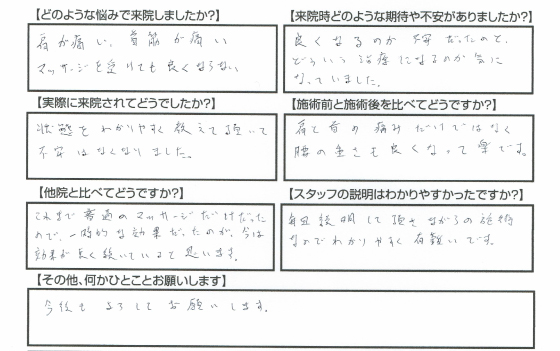 【どのような悩みで来院しましたか?】
肩が痛い、首筋が痛い
マッサージを受けても良くならない
【来院時どのような期待や不安がありましたか?】
良くなるのか不安だったのと、
どういう治療になるのか気に
なっていました。
【実際に来院されてどうでしたか?】
状態をわかりやすく教えて頂いて
不安はなくなりました。
【施術前と施術後を比べてどうですか?】
肩と首の痛みだけではなく
腰の重さも良くなって楽です。
【他院と比べてどうですか?】
これまで普通のマッサージだけだった
ので、一時的な効果だったのが、今は
効果が長く続いていると思います。
【スタッフの説明はわかりやすかったですか?】
毎回説明して頂きながらの施術
なのでわかりやすく有難いです。
【その他、何かひとことお願いします】
今後もよろしくお願いします。